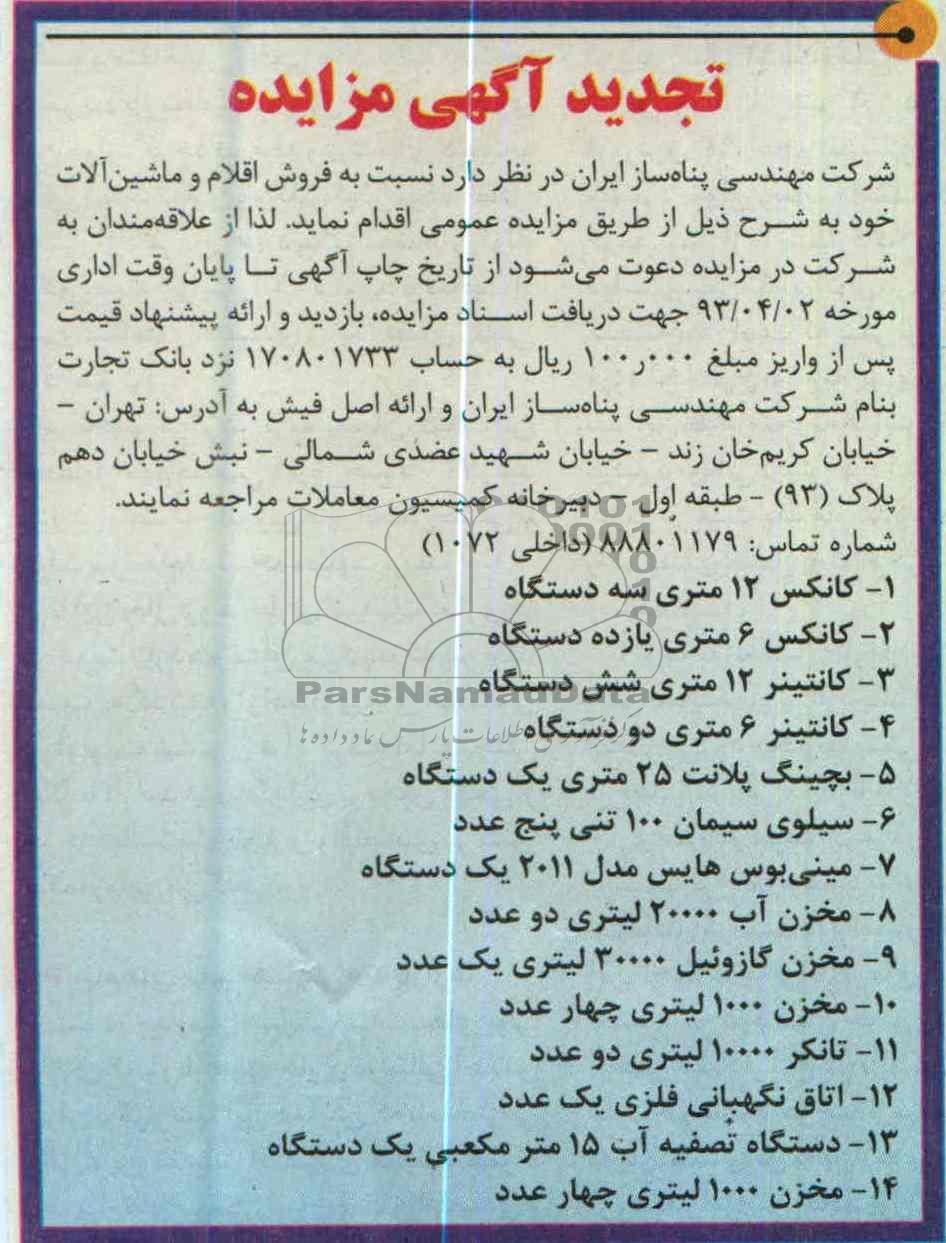 تجدید آگهی مزایده
شرکت مهندسی پناه‌ساز ایران در نظر دارد نسبت به فروش اقلام و ماشین‌آلات
خود به شرح ذیل از طریق مزایده عمومی اقدام نماید. لذا از علاقه‌مندان به
شرکت در مزایده دعوت می‌شود از تاریخ چاپ آگهی تا پایان وقت اداری
مورخه ۹۳/۰۴/۰۲ جهت دریافت اسناد مزایده، بازدید و ارائه پیشنهاد قیمت
پس از واریز مبلغ ۱۰۰ر۰۰۰ ریال به حساب ۱۷۰۸۰۱۷۳۳ نزد بانک تجارت
بنام شرکت مهندسی پناه‌ساز ایران و ارائه اصل فیش به آدرس: تهران –
خیابان کریم‌خان زند – خیابان شهید عضدی شمالی – نبش خیابان دهم
پلاک (۹۳) – طبقه اول – دبیرخانه کمیسیون معاملات مراجعه نمایند.
شماره تماس: ۸۸۸۰۱۱۷۹ (داخلی ۱۰۷۲)
۱- کانکس ۱۲ متری سه دستگاه
۲- کانکس ۶ متری یازده دستگاه
۳- کانتینر ۱۲ متری شش دستگاه
ParsNamadData
۴- کانتینر ۶ متری دو دستگاه
۵- بچینگ پلانت ۲۵ متری یک دستگاه
۶- سیلوی سیمان ۱۰۰ تنی پنج عدد
۷- مینی‌بوس هایس مدل ۲۰۱۱ یک دستگاه
۸- مخزن آب ۲۰۰۰۰ لیتری دو عدد
۹- مخزن گازوئیل ۳۰۰۰۰ لیتری یک عدد
۱۰- مخزن ۱۰۰۰ لیتری چهار عدد
۱۱- تانکر ۱۰۰۰۰ لیتری دو عدد
۱۲- اتاق نگهبانی فلزی یک عدد
۱۳- دستگاه تصفیه آب ۱۵ متر مکعبی یک دستگاه
۱۴- مخزن ۱۰۰۰ لیتری چهار عدد